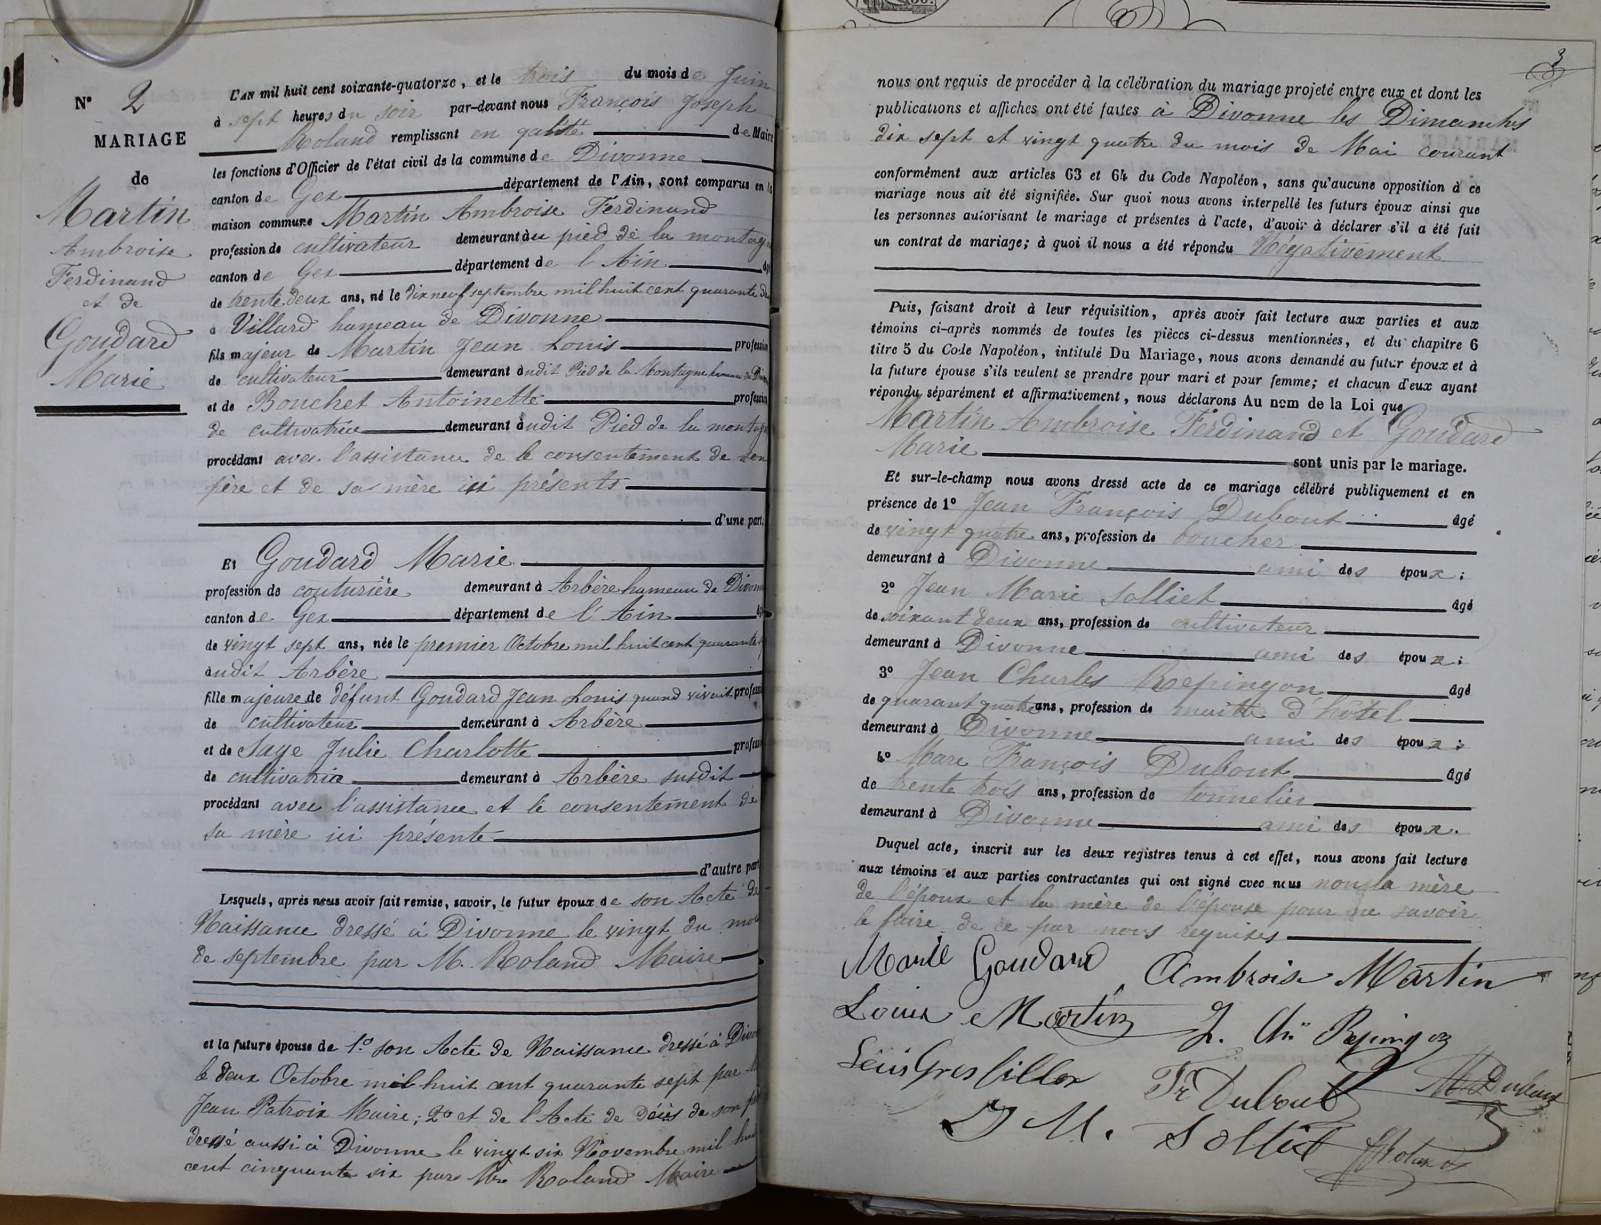 N° 2
MARIAGE
de
Martin
Ambroise
Ferdinand
et de
Goudard
Marie
L'AN mil huit cent soixante-quatorze, et le trois du mois de Juin
à sept heures du soir par-devant nous François Joseph
Roland remplissant en qualité de Maire
les fonctions d'Officier de l'état civil de la commune de Divonne
canton de Gex département de l'Ain, sont comparus en la
maison commune Martin Ambroise Ferdinand
profession de cultivateur demeurant au pied de la montagne
canton de Gex département de l'Ain âgé
de trente deux ans, né le dix neuf septembre mil huit cent quarante
à Villard hameau de Divonne
fils majeur de Martin Jean Louis profession
de cultivateur demeurant audit Pied de la Montagne hameau de
et de Bouchet Antoinette profession
de cultivatrice demeurant audit Pied de la montagne
procédant avec l'assistance de le consentement de son
père et de sa mère ici présents
d'une part.
Et Goudard Marie
profession de couturière demeurant à Arbère hameau de Divonne
canton de Gex département de l'Ain
de vingt sept ans, née le premier Octobre mil huit cent quarante
audit Arbère
fille majeure de défunt Goudard Jean Louis quand vivait profession
de cultivateur demeurant à Arbère
et de Sage Julie Charlotte profession
de cultivatrice demeurant à Arbère susdit
procédant avec l'assistance et le consentement de
sa mère ici présente
d'autre part
Lesquels, après nous avoir fait remise, savoir, le futur époux de son Acte de
Naissance dressé à Divonne le vingt du mois
de septembre par M. Roland Maire
et la future épouse de 1.° son Acte de Naissance dressé à
le deux Octobre mil huit cent quarante sept par M
Jean Patroix Maire; 2° et de l'Acte de Décès de son père
dressé aussi à Divonne le vingt six Novembre mil huit
cent cinquante six par Mr Roland Maire
3
nous ont requis de procéder à la célébration du mariage projeté entre eux et dont les
publications et affiches ont été faites à Divonne les Dimanches
dix sept et vingt quatre du mois de Mai courant
conformément aux articles 63 et 64 du Code Napoléon, sans qu'aucune opposition à ce
mariage nous ait été signifiée. Sur quoi nous avons interpellé les futurs époux ainsi que
les personnes autorisant le mariage et présentes à l'acte, d'avoir à déclarer s'il a été fait
un contrat de mariage; à quoi il nous a été répondu Négativement
Puis, faisant droit à leur réquisition, après avoir fait lecture aux parties et aux
témoins ci-après nommés de toutes les pièces ci-dessus mentionnées, et du chapitre 6
titre 5 du Code Napoléon, intitulé Du Mariage, nous avons demandé au futur époux et à
la future épouse s'ils veulent se prendre pour mari et pour femme; et chacun d'eux ayant
répondu séparément et affirmativement, nous déclarons Au nom de la Loi que
Martin Ambroise Ferdinand et Goudard
Marie sont unis par le mariage.
Et sur-le-champ nous avons dressé acte de ce mariage célébré publiquement et en
présence de 1° Jean François Dubout âgé
de vingt quatre ans, profession de boucher
demeurant à Divonne ami des époux;
2° Jean Marie Solliet âgé
de soixant deux ans, profession de cultivateur
demeurant à Divonne ami des époux;
3° Jean Charles Répingon âgé
de quarant quatre ans, profession de maitre d'hôtel
demeurant à Divonne ami des époux;
4° Marc François Dubout âgé
de trente trois ans, profession de tonnelier
demeurant à Divonne ami des époux.
Duquel acte, inscrit sur les deux registres tenus à cet effet, nous avons fait lecture
aux témoins et aux parties contractantes qui ont signé avec nous non la mère
de l'époux et la mère de l'épouse pour ne savoir
le faire de ce par nous requises
Marie Goudard Ambroise Martin
Louis Martin J. Ch. Répingon
Fs Dubout M Dubout
J M. Solliet